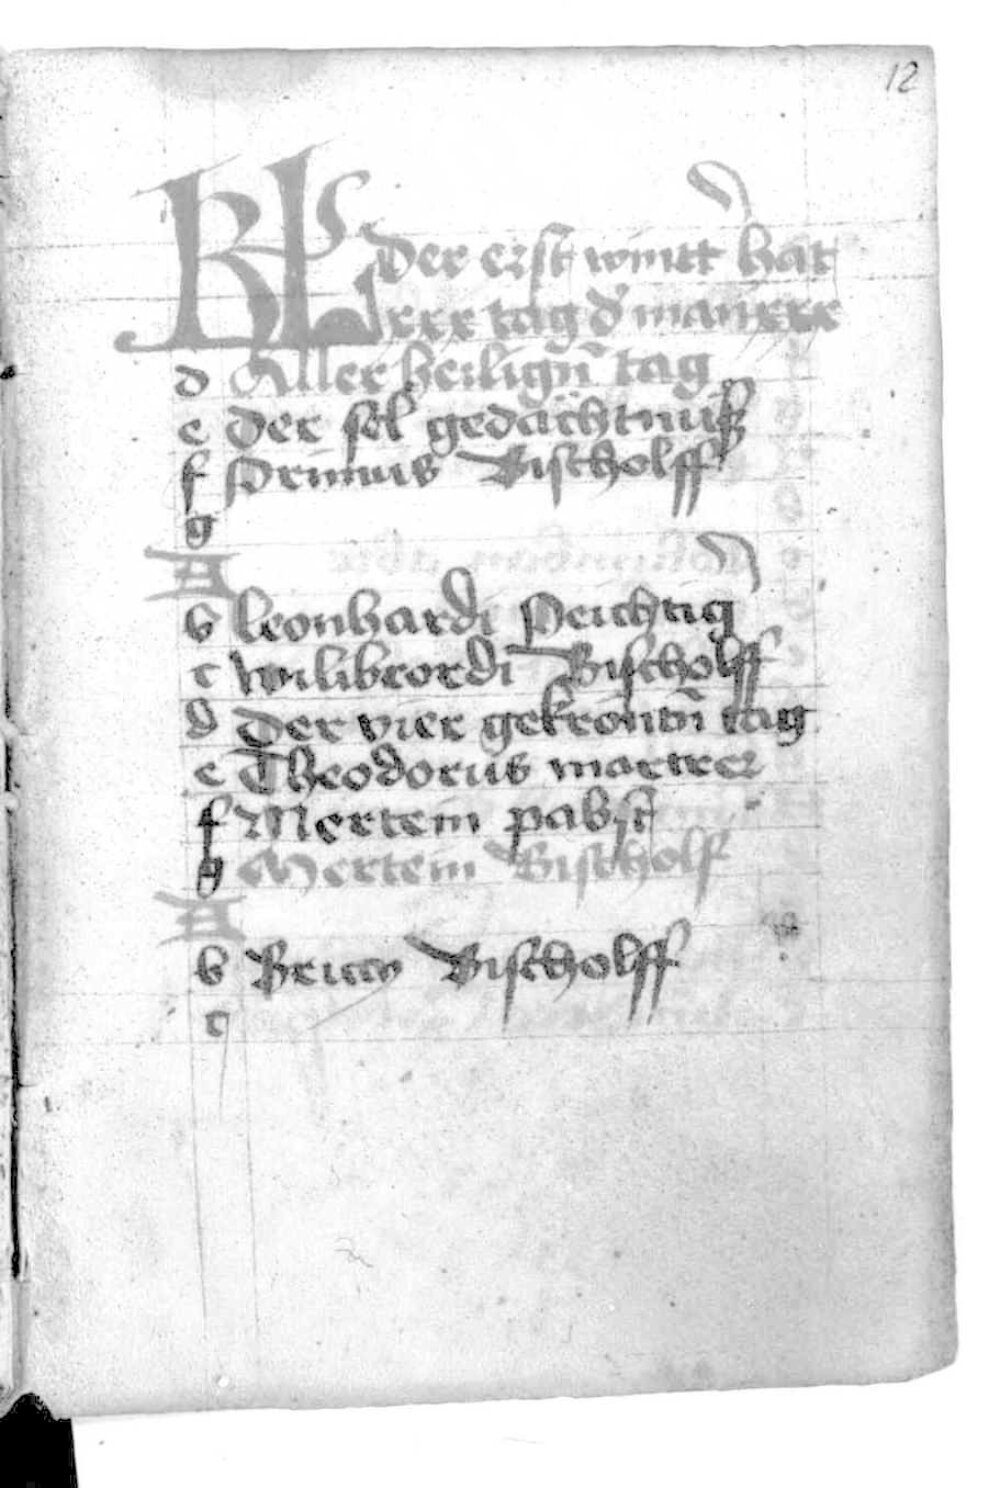 12
KL Der erst wintt hat
xxx tag d' man xxx
d Aller heiligñ tag
e der sel gedächtnuß
f Primus Bischolff
g
A
b leonhardi Peichtig
c wilibrordi Bischolff
d Der vier gekröntñ tag
e Theodorus martrer
f Mertein pabst
g Mertein Bischolf
A
b Briccy Bischolff
c